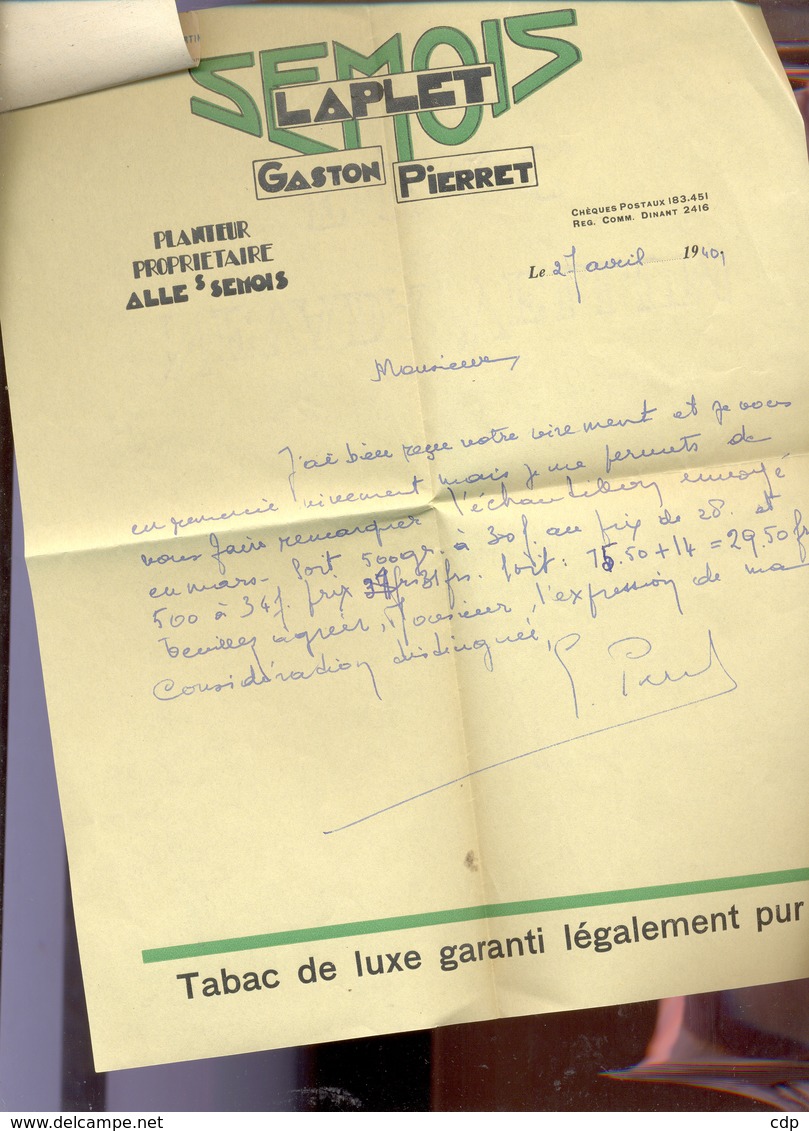 SEMOIS
LAPLET
GASTON PIERRET
CHÈQUES POSTAUX 183.451
REG. COMM. DINANT 2416
PLANTEUR
PROPRIETAIRE
ALLE S SEMOIS
Le 27 avril 1940,
Monsieur,
J'ai bien reçu votre virement et je vous
en remercie vivement mais je me permets de
vous faire remarquer l'échantillon envoyé
en mars - soit 500gr. à 30f. au prix de 28. et
500 à 34f. prix 31frs. soit : 15.50 + 14 = 29.50 fr
Veuillez agréer, Monsieur, l'expression de ma
Considération distinguée,
Tabac de luxe garanti légalement pur
cdp